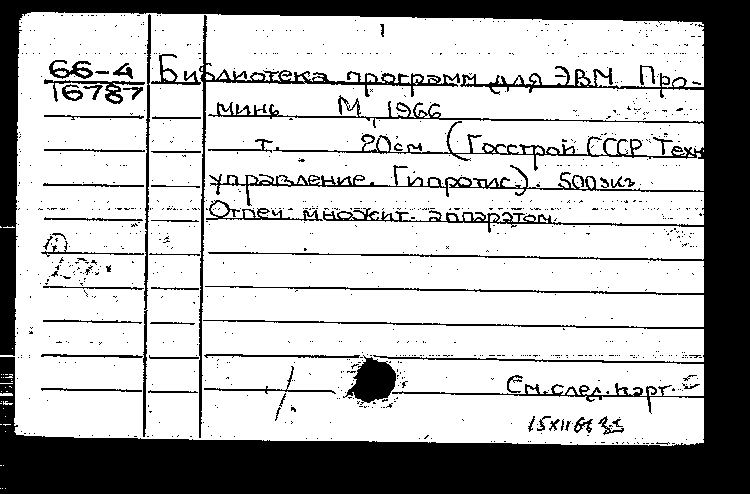 1
66-4 Библиотека программ для ЭВМ Про-
16787 минь М, 1966
т. 20см (Госстрой СССР Техн
управление. Гипротис). 500экз
Отпеч. множит. аппаратом.
См. след. карт.